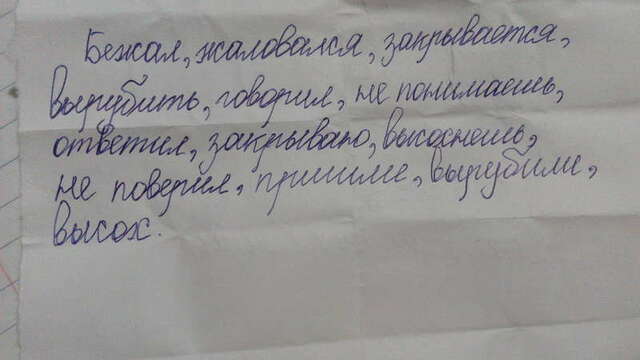 Бежал, жаловался, закрывается,
вырубить, говорил, не понимаешь,
ответил, закрываю, высохнешь,
не поверил, пришли, вырубили,
высох.